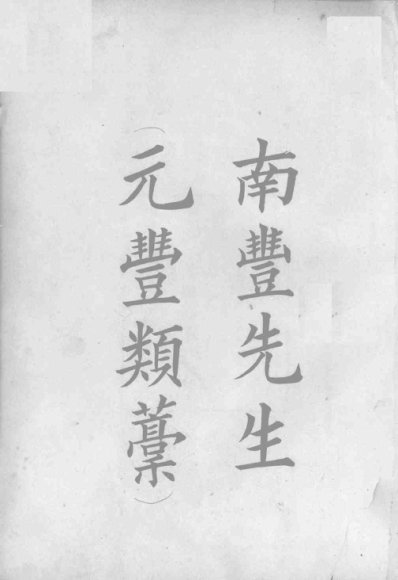 南豐先生
(元豐類藁)